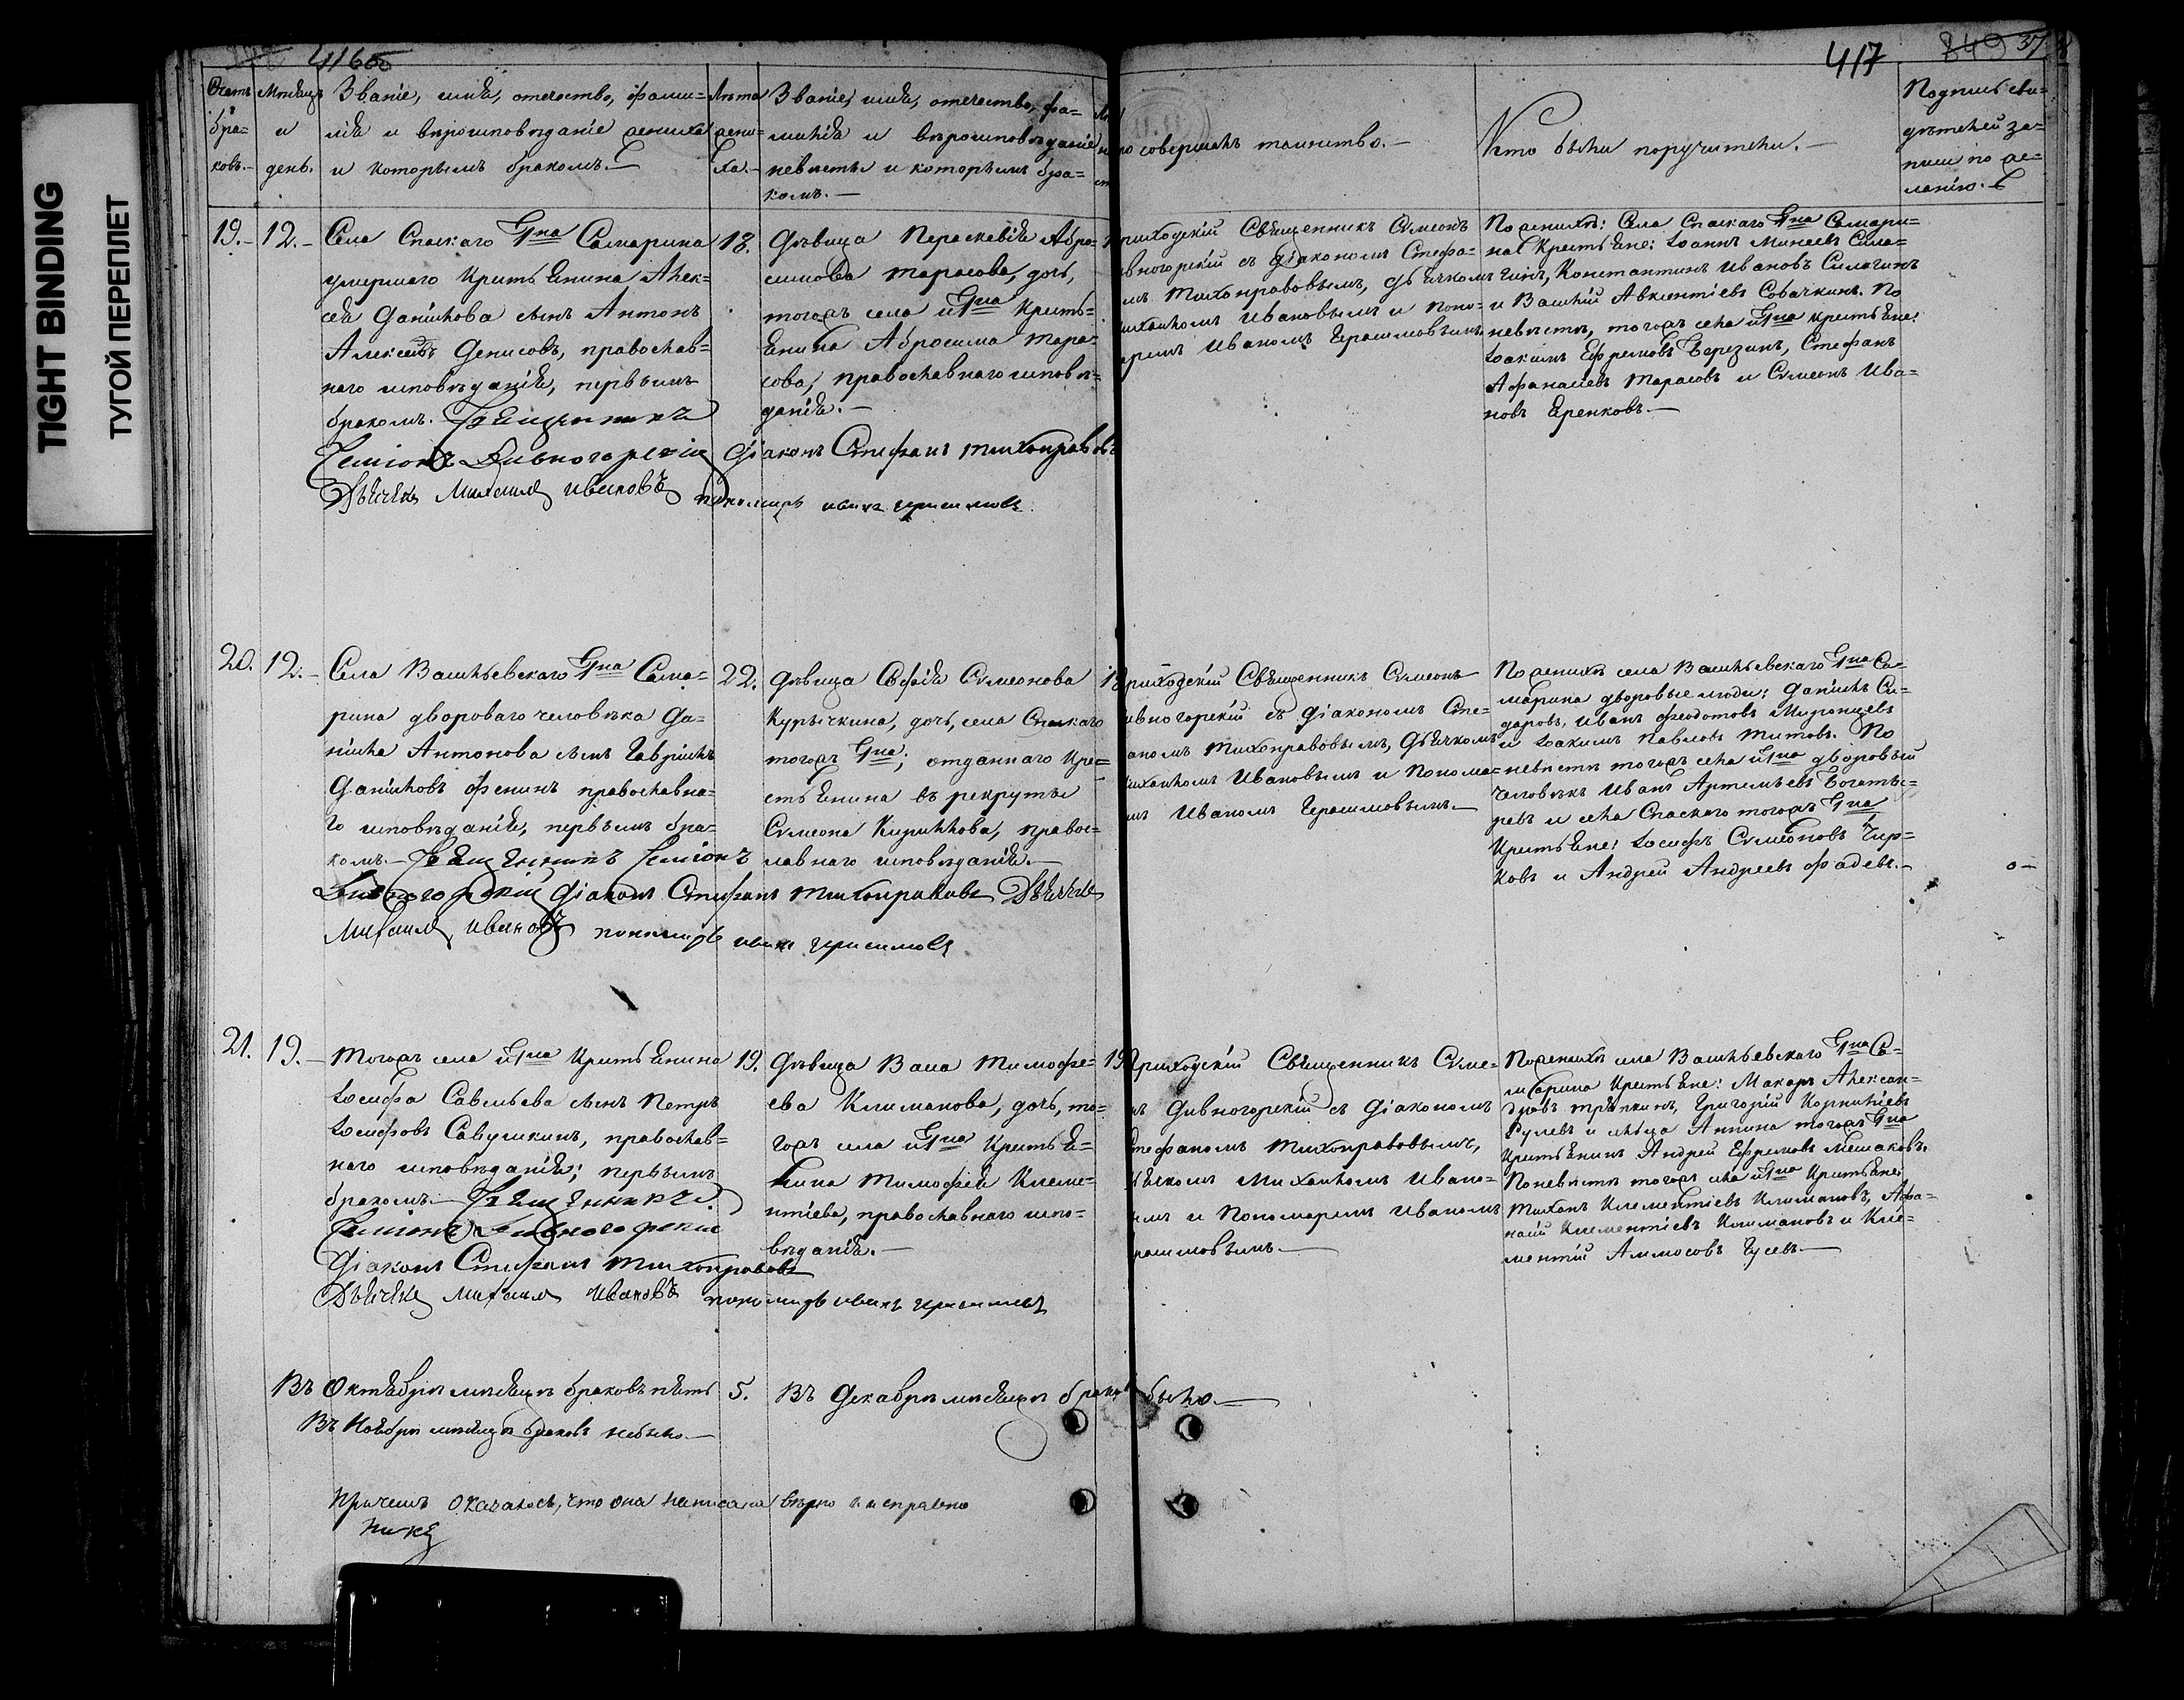 TIGHT BINDING
ТУГОЙ ПЕРЕПЛЕТ
416об
417
849
37
Счетъ
бра-
ковъ.
Мѣсяцъ
и
день.
Званіе, имя, отечество, фами=
лія и вѣроисповѣданіе жениха
и которымъ бракомъ.
Лѣта
жени=
ха.
Званіе, имя, отечество, фа=
милія и вѣроисповѣданіе
невѣсты и которымъ бра=
комъ.—
совершалъ таинство.—
Кто были поручители.—
Подпись сви=
дѣтелей за=
писи по же=
ланію.
19.— 12.—
Села Спаскаго Гна Самарина
умершаго крестьянина Алек=
сѣя Данилова сынъ Антонъ
Алексѣевъ Денисовъ, православ=
наго исповѣданія, первымъ
бракомъ. Священникъ
Симеонъ Дивногорскій
Дьячекъ Михаилъ Ивановъ
18.
Дѣвица Параскевія Абро=
симова Тарасова, дочь,
тогожъ села и Гна кресть=
янина Абросима Тара=
сова, православнаго исповѣ=
данія.—
Діаконъ Стефанъ Тихонравовъ
пономарь Иванъ Герасимовъ
Приходскій Священникъ Сѵмеонъ
Дивногорскій съ діакономъ Стефа=
номъ Тихонравовымъ, дьячкомъ
Михаиломъ Ивановымъ и поно=
маремъ Иваномъ Герасимовымъ.
По женихѣ: Села Спаскаго Гна Самари=
на Крестьяне: Іоаннъ Минеевъ Сила=
гинъ, Константинъ Ивановъ Силагинъ
и Василій Авксентіевъ Собачкинъ. По
невѣстѣ, тогожъ села и Гна крестьяне:
Іоакимъ Ефремовъ Березинъ, Стефанъ
Афанасіевъ Тарасовъ и Сѵмеонъ Ива=
новъ Еренковъ.—
20. 12.—
Села Васильевскаго Гна Сама=
рина дворового человѣка Да=
нила Антонова сынъ Гавріилъ
Даниловъ Фенинъ православна=
го исповѣданія, первымъ бра=
комъ.— Священникъ Симеонъ
Дивногорскій Діаконъ Стефанъ Тихонравовъ Дьячекъ
Михаилъ Ивановъ пономарь Иванъ Герасимовъ
22.
Дѣвица Софія Сѵмеонова
Курычкина, дочь, села Спаскаго
тогожъ Гна; отданнаго Кре=
стьянина въ рекруты
Сѵмеона Кирилова, правос=
лавнаго исповѣданія.—
18
Приходскій Священникъ Сѵмеонъ
Дивногорскій съ діакономъ Сте=
фаномъ Тихонравовымъ, дьячкомъ
Михаиломъ Ивановымъ и Понома=
ремъ Иваномъ Герасимовымъ.—
По женихѣ села Васильевскаго Гна Са=
марина дворовые люди: Данилъ Си=
даровъ, Иванъ Феодотовъ Миронцевъ
и Іоакимъ Павловъ Титовъ. По
невѣстѣ тогожъ села и Гна дворовый
человѣкъ Иванъ Артемьевъ Богаты=
ревъ и села Спаскаго тогожъ Гна
Крестьяне: Іосифъ Сѵмеоновъ Чир=
ковъ и Андрей Андреевъ Фадевъ.—
21. 19.—
Тогожъ села и Гна крестьянина
Іосифа Савельева сынъ Петръ
Іосифовъ Савушкинъ, православ=
наго исповѣданія; первымъ
бракомъ.— Священникъ
Симеонъ Дивногорскій
Діаконъ Стефанъ Тихонравовъ
Дьячекъ Михаилъ Ивановъ пономарь Иванъ Герасимовъ
19.
Дѣвица Васа Тимофе=
ева Климанова, дочь, то=
гожъ села и Гна Крестья=
нина Тимофея Клеме=
нтіева, православнаго испо=
вѣданія.—
19
Приходскій Священникъ Сѵме=
онъ Дивногорскій съ Діакономъ
Стефаномъ Тихонравовымъ,
дьячкомъ Михаиломъ Ивано=
вымъ и Пономаремъ Иваномъ
Герасимовымъ.—
По женихѣ села Васильевскаго Гна Са=
марина Крестьяне: Макаръ Алексан=
дровъ Трѣпкинъ, Григорій Корниліевъ
Гулевъ и сельца Аннина тогожъ Гна
Крестьянинъ Андрей Ефремовъ Мешаковъ.
По невѣстѣ тогожъ села и Гна Крестьяне:
Тиханъ Клементіевъ Климановъ, Афа=
насій Клементіевъ Климановъ и Кле=
ментій Аммосовъ Гусевъ.—
Въ Октябрѣ мѣсяцѣ браковъ пять 5. Въ Декабрѣ мѣсяцѣ браковъ было.—
Въ Ноябрѣ мѣсяцѣ браковъ небыло.—
Причемъ оказалось, что она написана вѣрно и исправно